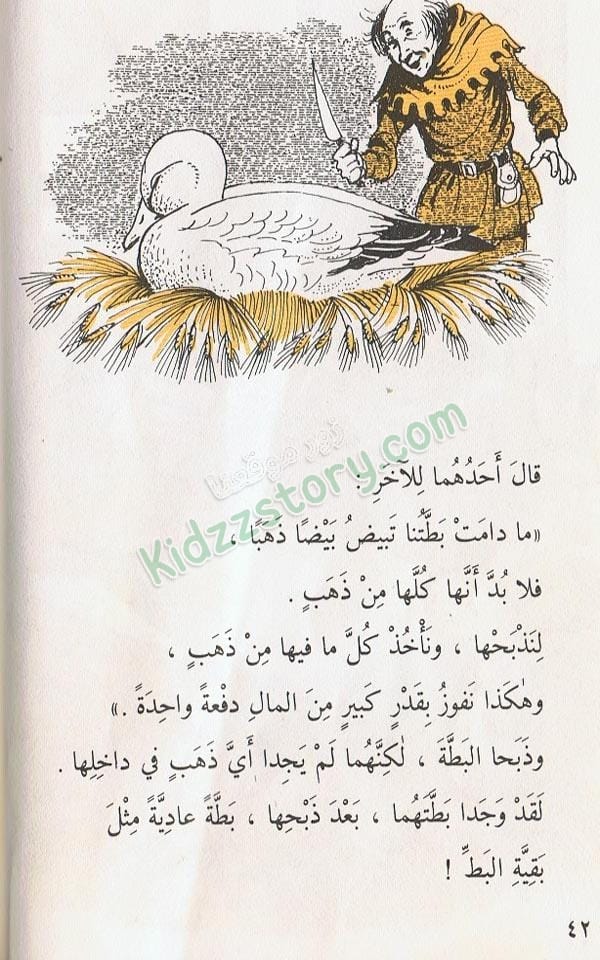 قالَ أَحَدُهُما لِلآخَرِ :
«ما دامَتْ بَطَّتُنا تَبيضُ بَيْضًا ذَهَبًا ،
فلا بُدَّ أَنَّها كُلَّها مِنْ ذَهَبٍ .
لِنَذْبَحْها ، ونَأْخُذْ كُلَّ ما فيها مِنْ ذَهَبٍ ،
وهٰكَذا نَفوزُ بِقَدْرٍ كَبيرٍ مِنَ المالِ دفْعةً واحِدَةً .»
وذَبَحا البَطَّةَ ، لٰكِنَّهُما لَمْ يَجِدا أَيَّ ذَهَبٍ في داخِلِها .
لَقَدْ وَجَدا بَطَّتَهُما ، بَعْدَ ذَبْحِها ، بَطَّةً عادِيَّةً مِثْلَ
بَقِيَّةِ البَطِّ !
٤٢
زوروا موقعنا
Kidzzstory.com